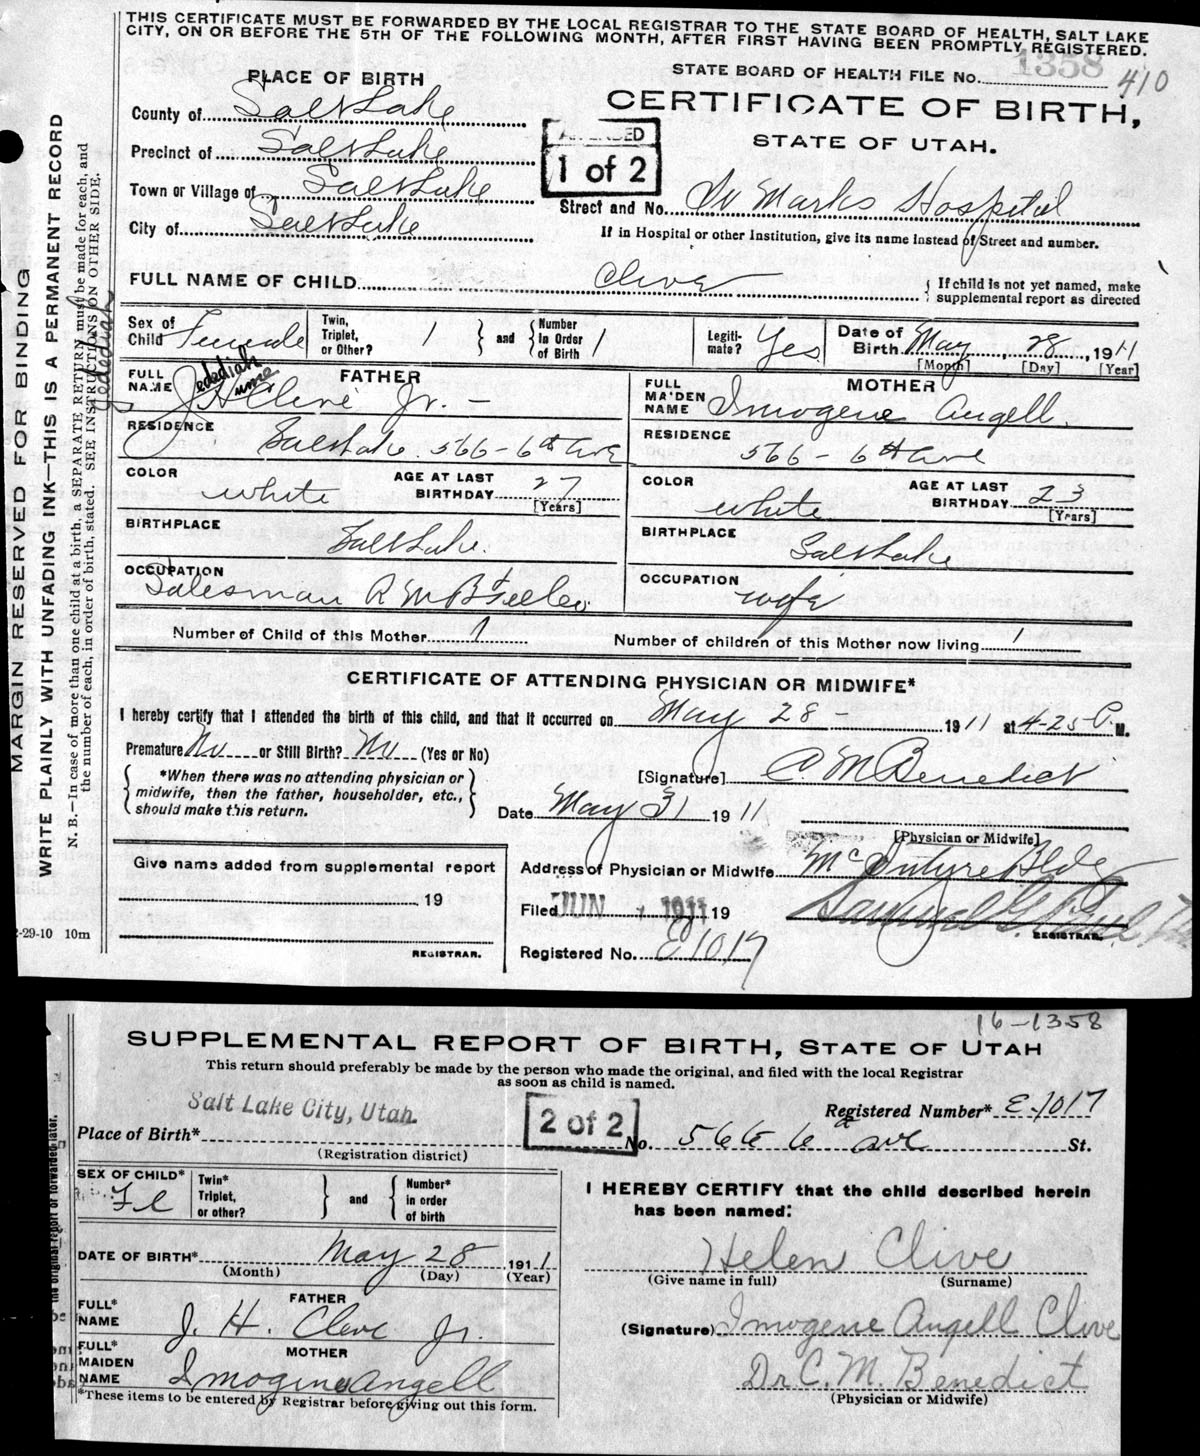 THIS CERTIFICATE MUST BE FORWARDED BY THE LOCAL REGISTRAR TO THE STATE BOARD OF HEALTH, SALT LAKE
CITY, ON OR BEFORE THE 5TH OF THE FOLLOWING MONTH, AFTER FIRST HAVING BEEN PROMPTLY REGISTERED.
STATE BOARD OF HEALTH FILE No. 1358 410
PLACE OF BIRTH
CERTIFICATE OF BIRTH,
STATE OF UTAH.
AMENDED
1 of 2
County of Salt Lake
Precinct of Salt Lake
Town or Village of Salt Lake
City of Salt Lake
Street and No. St Marks Hospital
If in Hospital or other Institution, give its name instead of Street and number.
FULL NAME OF CHILD Clive
If child is not yet named, make supplemental report as directed
Sex of Child Female
Twin, Triplet, or Other? 1 and Number in Order of Birth 1
Legitimate? Yes
Date of Birth May 28, 1911
[Month] [Day] [Year]
FATHER
FULL NAME J H Clive Jr. -
Jedediah
RESIDENCE Salt Lake 566-6th Ave
COLOR white
AGE AT LAST BIRTHDAY 27
[Years]
BIRTHPLACE Salt Lake.
OCCUPATION Salesman
MOTHER
FULL MAIDEN NAME Imogene Angell.
RESIDENCE 566-6th Ave
COLOR white
AGE AT LAST BIRTHDAY 23
[Years]
BIRTHPLACE Salt Lake
OCCUPATION wife
Number of Child of this Mother 1
Number of children of this Mother now living 1
CERTIFICATE OF ATTENDING PHYSICIAN OR MIDWIFE*
I hereby certify that I attended the birth of this child, and that it occurred on May 28 - 1911 at 4-25 P. M.
Premature No or Still Birth? No (Yes or No)
*When there was no attending physician or
midwife, then the father, householder, etc.,
should make this return.
[Signature] C M Benedict
Date May 31 1911
[Physician or Midwife]
Give name added from supplemental report
19
REGISTRAR.
Address of Physician or Midwife McIntyre Bldg
Filed JUN 1911 19
REGISTRAR.
Registered No. E1017
MARGIN RESERVED FOR BINDING
WRITE PLAINLY WITH UNFADING INK—THIS IS A PERMANENT RECORD
N. B.—In case of more than one child at a birth, a SEPARATE RETURN must be made for each, and
the number of each, in order of birth, stated. SEE INSTRUCTIONS ON OTHER SIDE.
Jedediah
-29-10 10m
16-1358
SUPPLEMENTAL REPORT OF BIRTH, STATE OF UTAH
This return should preferably be made by the person who made the original, and filed with the local Registrar
as soon as child is named.
Salt Lake City, Utah.
Place of Birth*
(Registration district)
2 of 2
Registered Number* E-1017
No. 566 6th Ave St.
SEX OF CHILD* Fe
Twin* Triplet, or other? and Number* in order of birth
DATE OF BIRTH* May 28 1911
(Month) (Day) (Year)
FATHER
FULL* NAME J. H. Clive Jr.
MOTHER
FULL* MAIDEN NAME Imogine Angell
*These items to be entered by Registrar before giving out this form.
I HEREBY CERTIFY that the child described herein
has been named:
Helen Clive
(Give name in full) (Surname)
(Signature) Imogene Angell Clive
Dr C. M. Benedict
(Physician or Midwife)